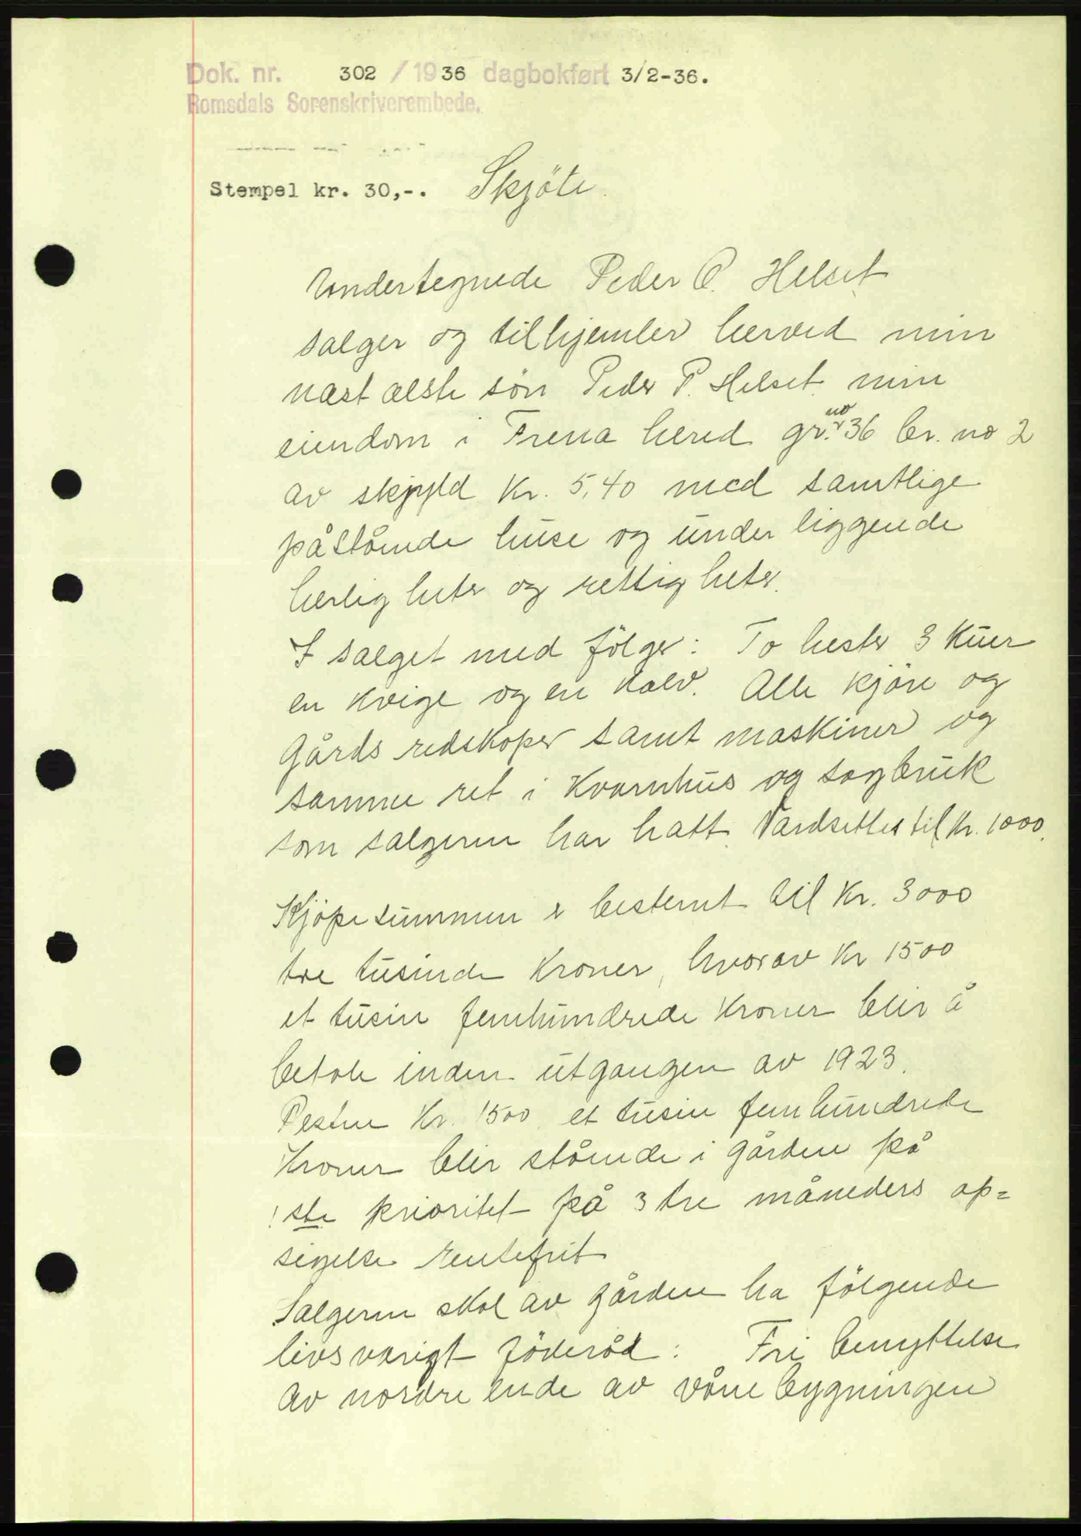 Dok. nr. 302 / 1936 dagbokført 3/2-36.
Romsdals Sorenskriverembede.
Stempel kr. 30,-. Skjöte.
Undertegnede Peder O. Helset
sælger og tilhjemler herved min
næst ælste sön Peder P. Helset min
eiendom i Fræna hered gr. no 36 br. no 2
av skjyld Kr. 5,40 med samtlige
påstående huse og under liggende
herlig heter og rettig heter.
I salget med fölger: To hester 3 Kuer
en Kvige og en Kalv. Alle kjöre og
Gårds redskaper samt maskiner og
samme ret i Kvarnhus og sagbruk
som sælgeren har hatt. Værdsettes til Kr. 1000.
Kjöpesummen er bestemt til Kr. 3000
tre tusinde Kroner, hvorav Kr 1500
et tusin femhundrede Kroner blir å
betale inden utgangen av 1923.
Resten Kr. 1500 et tusin femhundrede
Kroner blir stående i gården på
1ste prioritet på 3 tre måneders op=
sigelse rentefrit
Sælgeren skal av gården ha fölgende
livsvarigt föderåd: Fri benyttelse
av nordre ende av våne bygningen